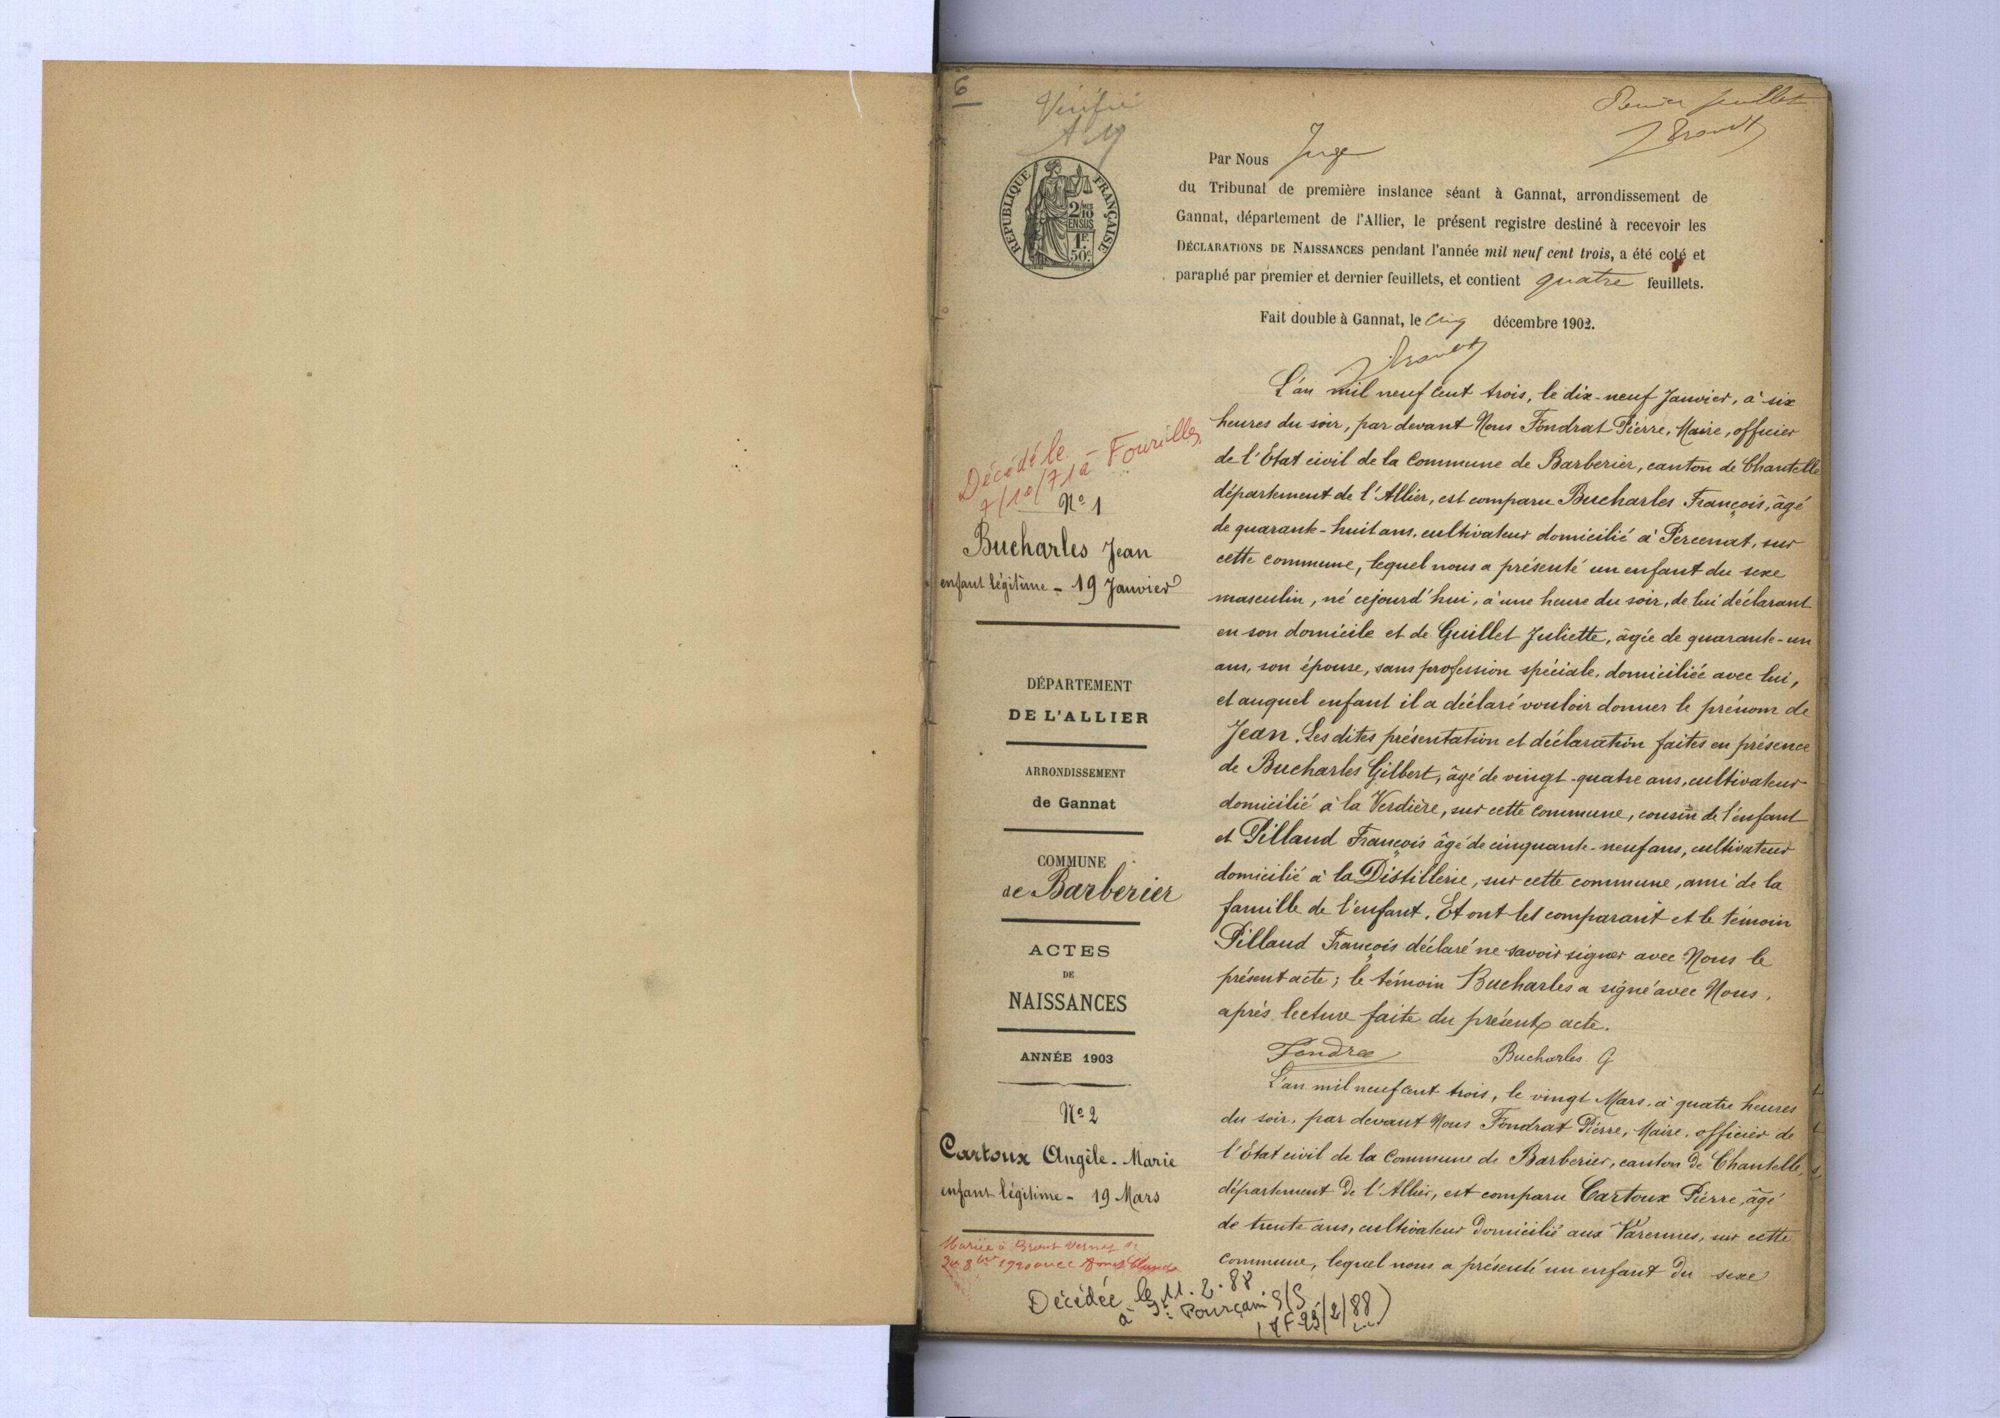 6
Vérifié
Premier feuillet
RÉPUBLIQUE FRANÇAISE
2/10 EN SUS
1F. 50c
Par Nous Juge
du Tribunal de première instance séant à Gannat, arrondissement de
Gannat, département de l'Allier, le présent registre destiné à recevoir les
DÉCLARATIONS DE NAISSANCES pendant l'année mil neuf cent trois, a été coté et
paraphé par premier et dernier feuillets, et contient quatre feuillets.
Fait double à Gannat, le cinq décembre 1902.
Décédé le
7/10/71 à Fourilles
Nº 1
Bucharles Jean
enfant légitime - 19 Janvier
DÉPARTEMENT
DE L'ALLIER
ARRONDISSEMENT
de Gannat
COMMUNE
de Barberier
ACTES
DE
NAISSANCES
ANNÉE 1903
Nº 2
Cartoux Angèle-Marie
enfant légitime - 19 Mars
Mariée à Brout Vernet le
1920 avec
Décédée le 11.2.88
à St Pourçain S/S
L'an mil neuf cent trois, le dix-neuf Janvier, à six
heures du soir, par devant Nous Fondrat Pierre, Maire, officier
de l'Etat civil de la Commune de Barberier, canton de Chantelle
département de l'Allier, est comparu Bucharles François, âgé
de quarante-huit ans, cultivateur domicilié à Percenat, sur
cette commune, lequel nous a présenté un enfant du sexe
masculin, né cejourd'hui, à une heure du soir, de lui déclarant
en son domicile et de Guillet Juliette, âgée de quarante-un
ans, son épouse, sans profession spéciale, domiciliée avec lui,
et auquel enfant il a déclaré vouloir donner le prénom de
Jean. Les dites présentation et déclaration faites en présence
de Bucharles Gilbert, âgé de vingt-quatre ans, cultivateur
domicilié à la Verdière, sur cette commune, cousin de l'enfant
et Pillaud François âgé de cinquante-neuf ans, cultivateur
domicilié à la Distillerie, sur cette commune, ami de la
famille de l'enfant. Et ont les comparant et le témoin
Pillaud François déclaré ne savoir signer avec Nous le
présent acte ; le témoin Bucharles a signé avec Nous,
après lecture faite du présent acte.
Bucharles G
L'an mil neuf cent trois, le vingt Mars, à quatre heures
du soir, par devant Nous Fondrat Pierre, Maire, officier de
l'Etat civil de la Commune de Barberier, canton de Chantelle,
département de l'Allier, est comparu Cartoux Pierre, âgé
de trente ans, cultivateur domicilié aux Varennes, sur cette
commune, lequel nous a présenté un enfant du sexe